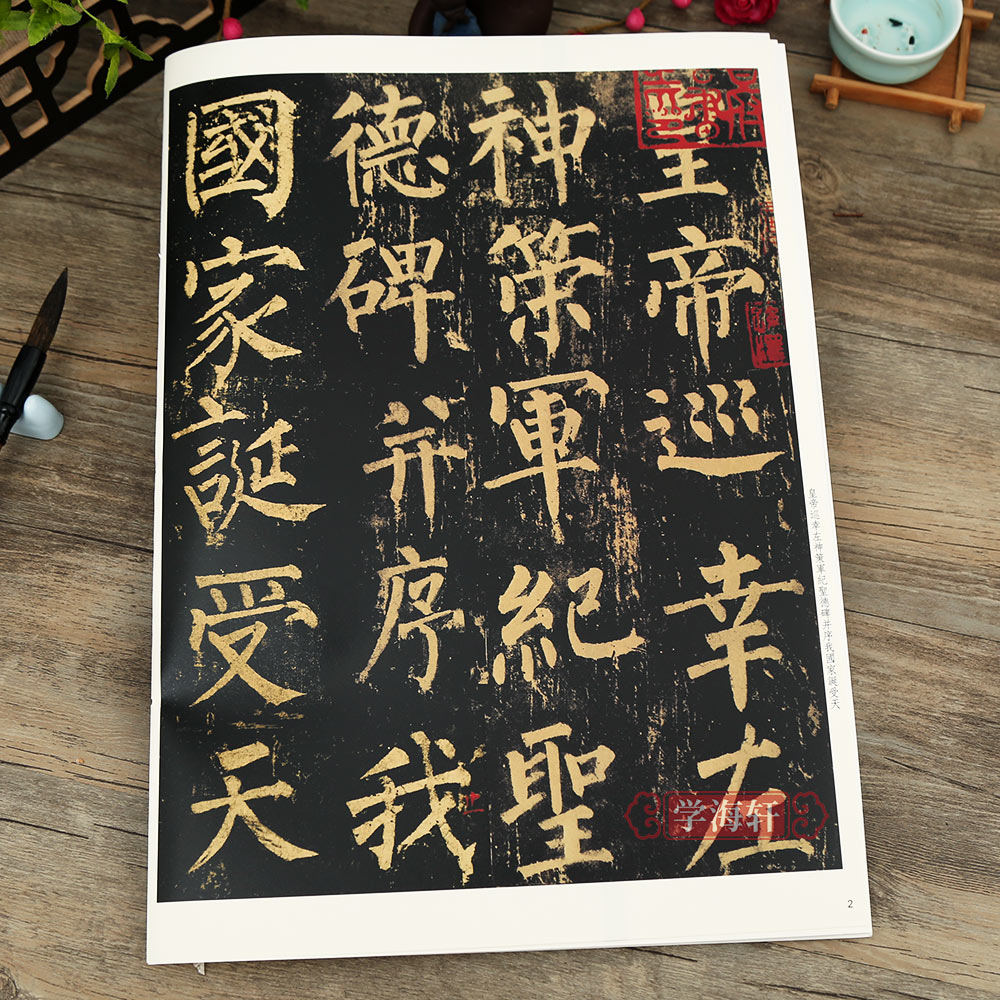 皇帝巡幸左
神策軍紀聖
德碑并序我
國家誕受天
皇帝巡幸左神策軍紀聖德碑并序我國家誕受天
学海轩
2